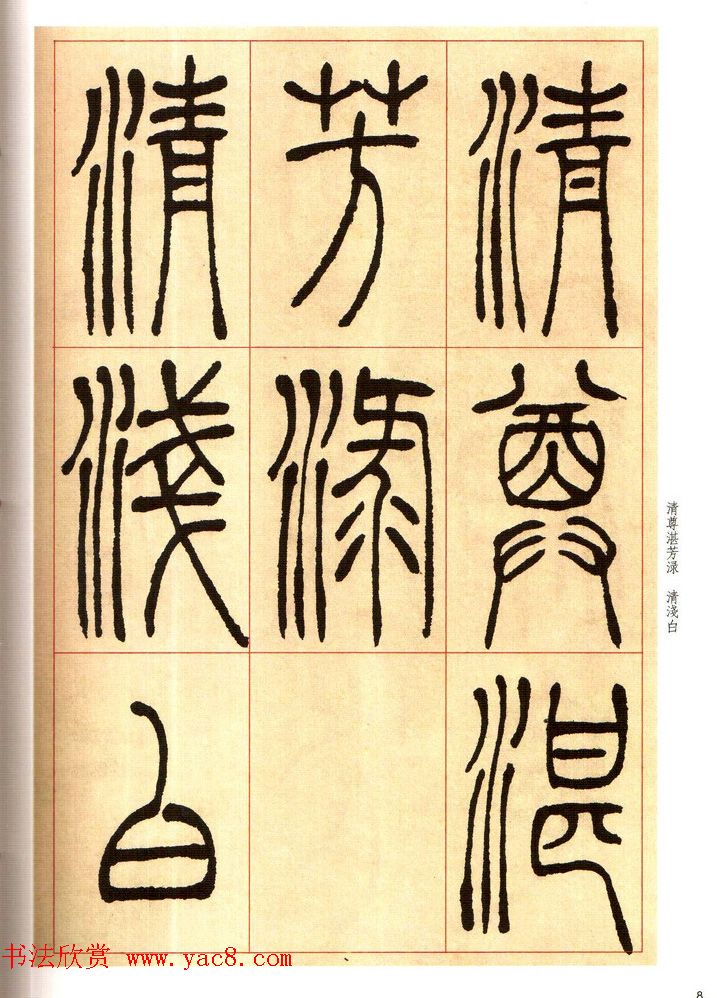 清尊湛
芳渌
清淺白
清尊湛芳渌　清淺白
书法欣赏 www.yac8.com
8